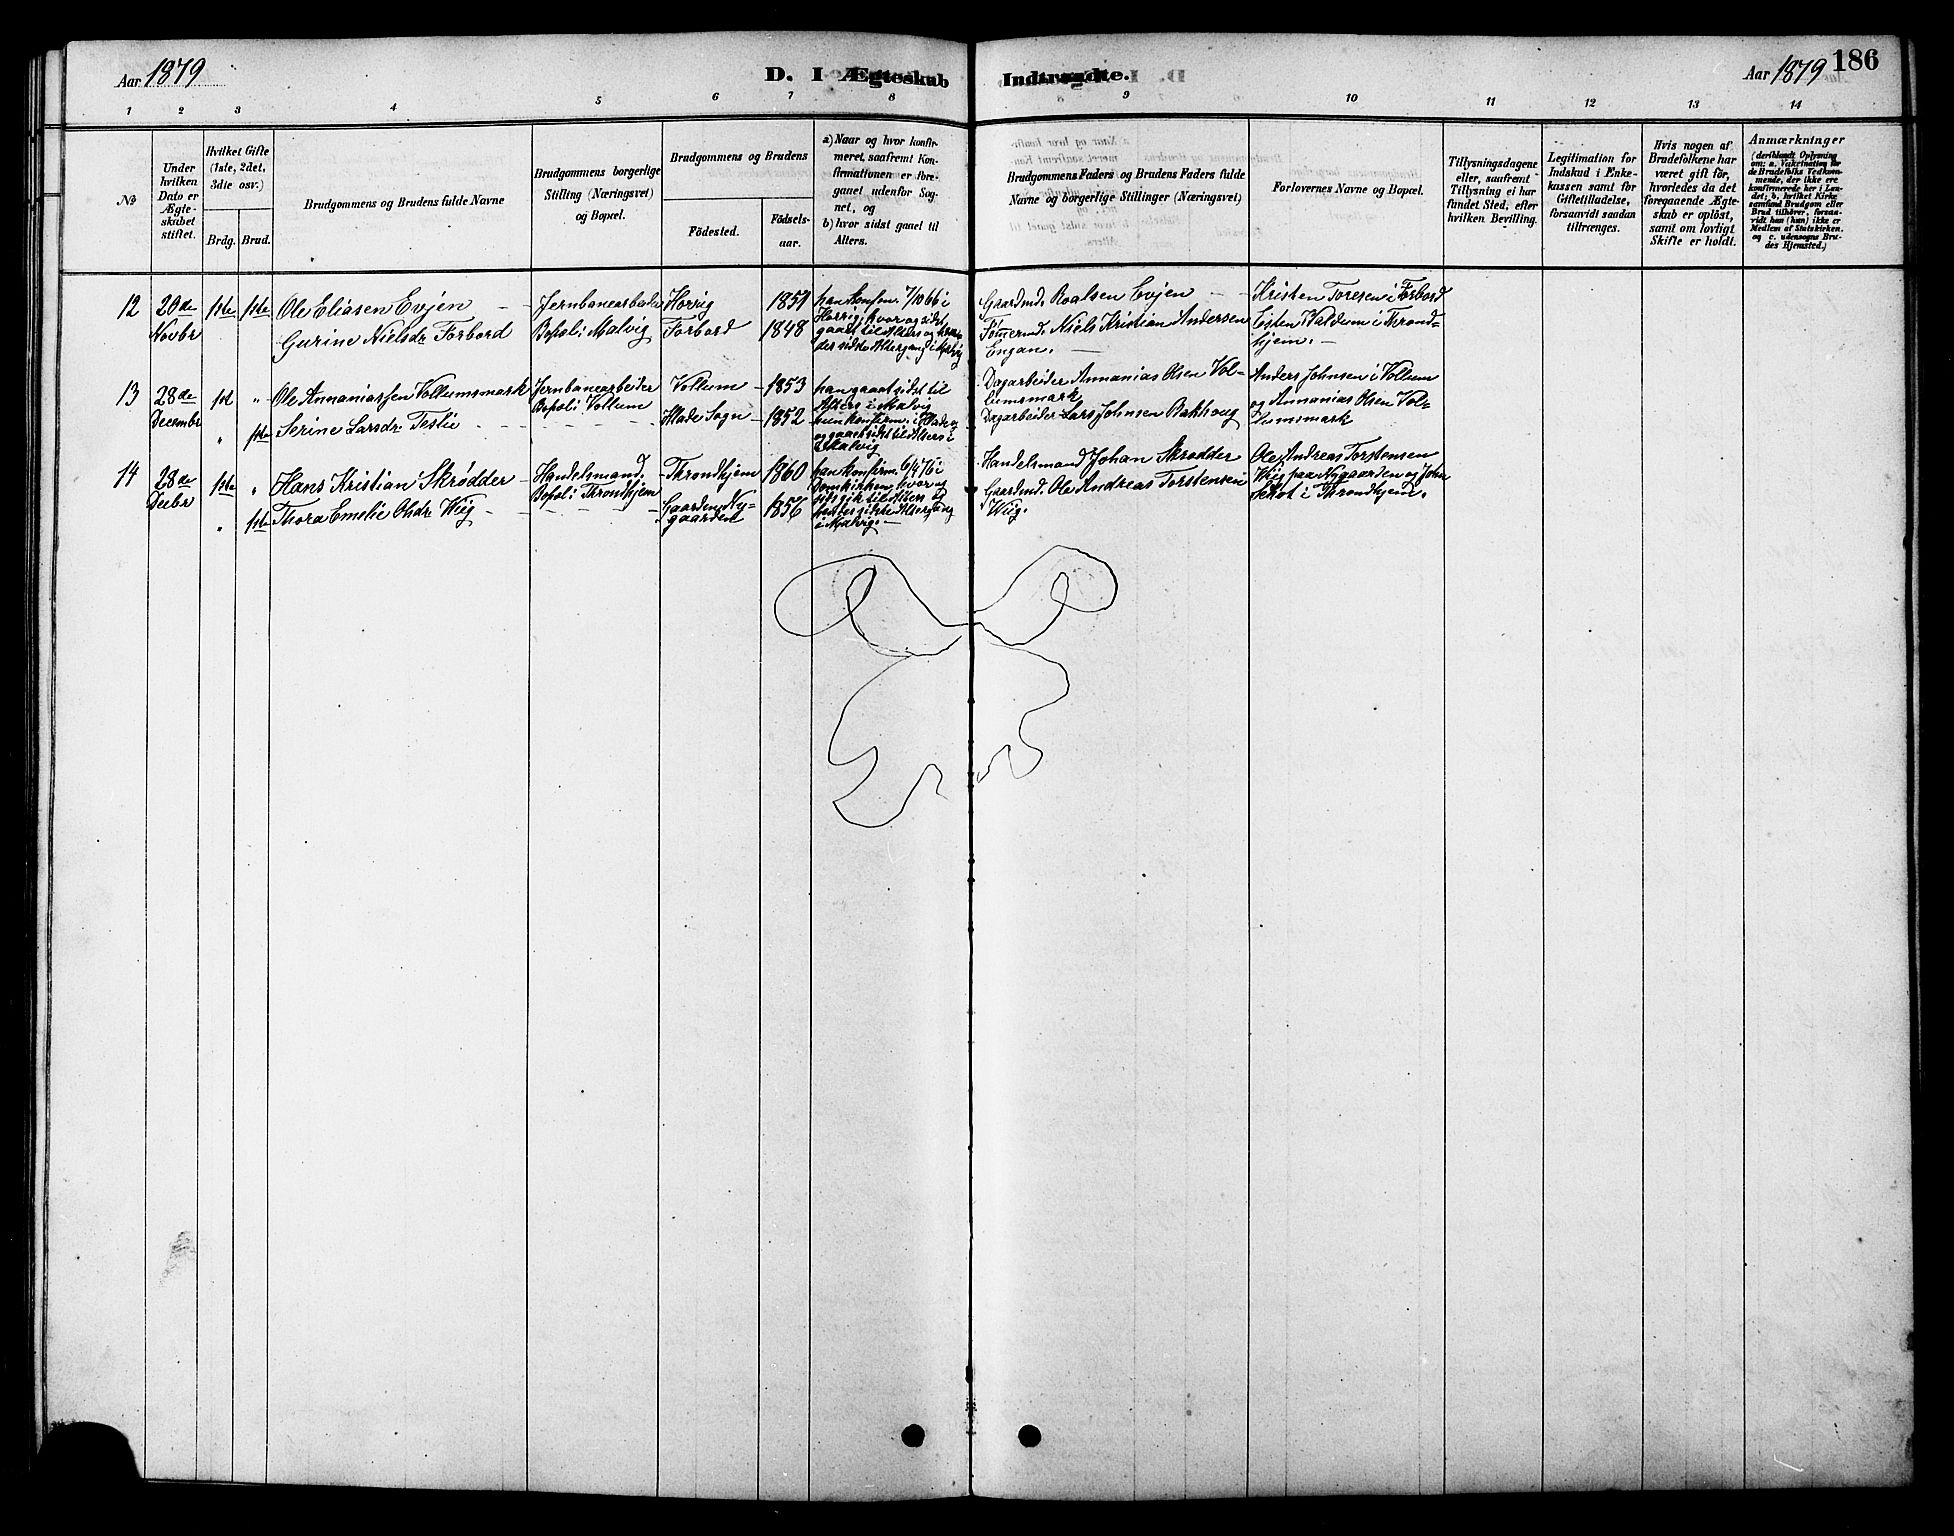 Aar 1879
D. I Ægteskab Indtraadte.
Aar 1879
186
1 2 3 4 5 6 7 8 9 10 11 12 13 14
No
Under
hvilken
Dato er
Ægte-
skabet
stiftet.
Hvilket Gifte
(1ste, 2det,
3die osv.)
Brdg. Brud.
Brudgommens og Brudens fulde Navne
Brudgommens borgerlige
Stilling (Næringsvei)
og Bopæl.
Brudgommens og Brudens
Födested.
Födsels-
aar.
a) Naar og hvor konfir-
meret, saafremt Kon-
firmationen er fore-
gaaet udenfor Sog-
net, og
b) hvor sidst gaaet til
Alters.
Brudgommens Faders og Brudens Faders fulde
Navne og borgerlige Stillinger (Næringsvei)
Forlovernes Navne og Bopæl.
Tillysningsdagene
eller, saafremt
Tillysning ei har
fundet Sted, efter
hvilken Bevilling.
Legitimation for
Indskud i Enke-
kassen samt for
Giftetilladelse,
forsaavidt saadan
tiltrænges.
Hvis nogen af
Brudefolkene har
været gift för,
hvorledes da det
foregaaende Ægte-
skab er oplöst,
samt om lovligt
Skifte er holdt.
Anmærkninger
(deriblandt Oplysning
om: a. Vakcination for
de Brudefolks Vedkom-
mende, der ikke ere
konfirmerede her i Lan-
det; b. hvilket Kirke-
samfund Brudgom eller
Brud tilhører, forsaa-
vidt han (hun) ikke er
Medlem af Statskirken.
og c. udensogns Bru-
des Hjemsted.)
12
20de
Novbr
1ste 1ste
Ole Eliasen Evjen
Gurine Nielsdr Forbord
Jernbanearbeider
Bopæl: Malvig
Horrig
Forbord
1851
1848
han konfirm. 7/10 66 i
Horrig, hvor og sidst
gaaet til Alters og
des sidste Altergang i Malvig
Gaardmd. Roalsen Evjen
Niels Kristian Andersen
Engan.
Kristen Toresen i Forbord
Esten Valdum i Thrond-
hjem.
13
28de
Decembr
1ste "
" 1ste
Ole Annaniassen Vollumsmark
Serine Larsdr Teslie
Jernbanearbeider
Bopæl: Vollum
Vollum
Hlade Sogn
1853
1852
han gaaet sidst til
Alters i Malvig
hun konfirm. i Hlade
og gaaet sidst til Alters i
Malvig
Dagarbeider Annanias Olsen Vol-
lumsmark
Dagarbeider Lars Johnsen Bakhoug
Anders Johnsen i Vollum
og Annanias Olsen Vol-
lumsmark
14
28de
Decbr
1ste "
" 1ste
Hans Kristian Skrødder
Thora Emelie Olsdr Wiig
Handelsmand,
Bopæl: Throndhjem
Throndhjem
Gaarden Ny-
gaarden
1860
1856
han konfirm. 6/4 76 i
Domkirken, hvor og
sidst gik til Alters og
hendes sidste Altergang
i Malvig.
Handelsmand Johan Skrødder
Gaardmd. Ole Andreas Torstensen
Wiig.
Ole Andreas Torstensen
Wiig paa Nygaarden og John
i Throndhjem.